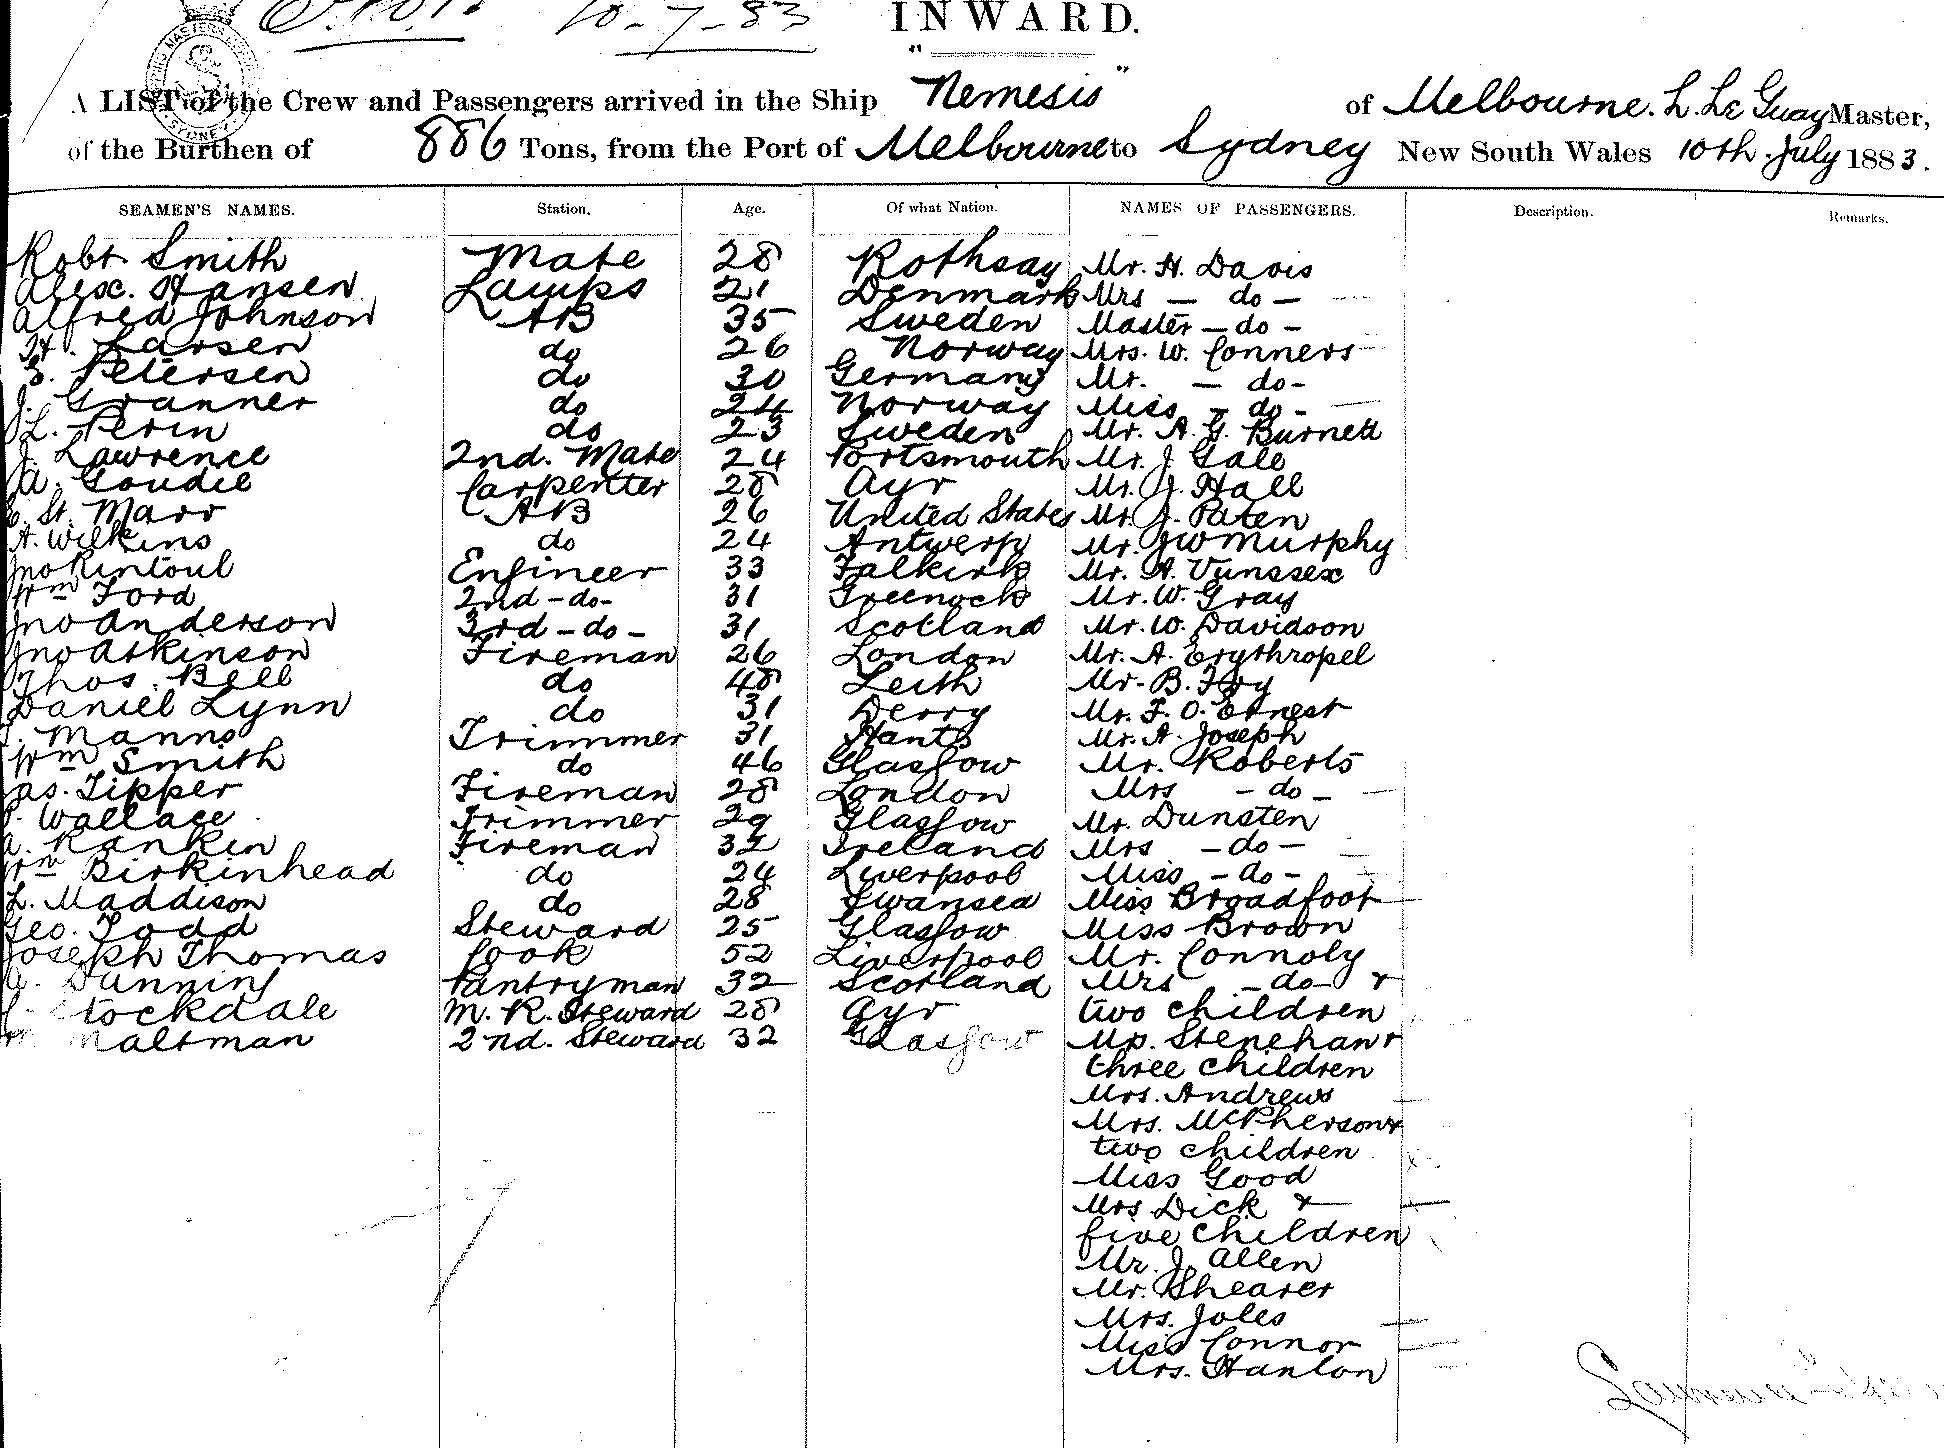 10-7-83
INWARD.
A LIST of the Crew and Passengers arrived in the Ship "Nemesis" of Melbourne. L. Le Guay Master,
of the Burthen of 886 Tons, from the Port of Melbourne to Sydney New South Wales 10th July 1883.
SEAMEN'S NAMES. Station. Age. Of what Nation. NAMES OF PASSENGERS. Description. Remarks.
Robt Smith Mate 28 Rothsay Mr. H. Davis
Alex. Hansen Lamps 21 Denmark Mrs - do -
Alfred Johnson AB 35 Sweden Master - do -
H. Larsen do 26 Norway Mrs. W. Conners
Petersen do 30 Germany Mr. - do -
J. Granner do 24 Norway Miss - do -
L. Perin do 23 Sweden Mr. A. G. Burnett
J. Lawrence 2nd. Mate 24 Portsmouth Mr. J. Gale
A. Goudie Carpenter 28 Ayr Mr. J. Hall
St. Marr AB 26 United States Mr. J. Paten
A. Wilkins do 24 Antwerp Mr. J W Murphy
Jno Rintoul Engineer 33 Falkirk Mr. A. Vunssex
Wm Ford 2nd - do - 31 Greenock Mr. W. Gray
Jno Anderson 3rd - do - 31 Scotland Mr. W. Davidson
Jno Atkinson Fireman 26 London Mr. A. Erythropel
Thos. Bell do 48 Leith Mr. B. Foy
Daniel Lynn do 31 Derry Mr. F. O. Ernest
Manns Trimmer 31 Hants Mr. A. Joseph
Wm Smith do 46 Glasgow Mr. Roberts
Jas. Tipper Fireman 28 London Mrs - do -
Wallace Trimmer 29 Glasgow Mr. Dunsten
A. Rankin Fireman 32 Ireland Mrs - do -
Wm Birkinhead do 24 Liverpool Miss - do -
L. Maddison do 28 Swansea Miss Broadfoot
Geo. Todd Steward 25 Glasgow Miss Brown
Joseph Thomas Cook 52 Liverpool Mr. Connoly
Dunning Pantryman 32 Scotland Mrs - do - &
Stockdale M. R. Steward 28 Ayr two children
Maltman 2nd. Steward 32 Glasgow Mr. Stenehan &
three children
Mrs. Andrews
Mrs. McPherson &
two children
Miss Good
Mrs Dick &
five children
Mr. J. Allen
Mr. Shearer
Mrs. Joles
Miss Connor
Mrs. Hanlon